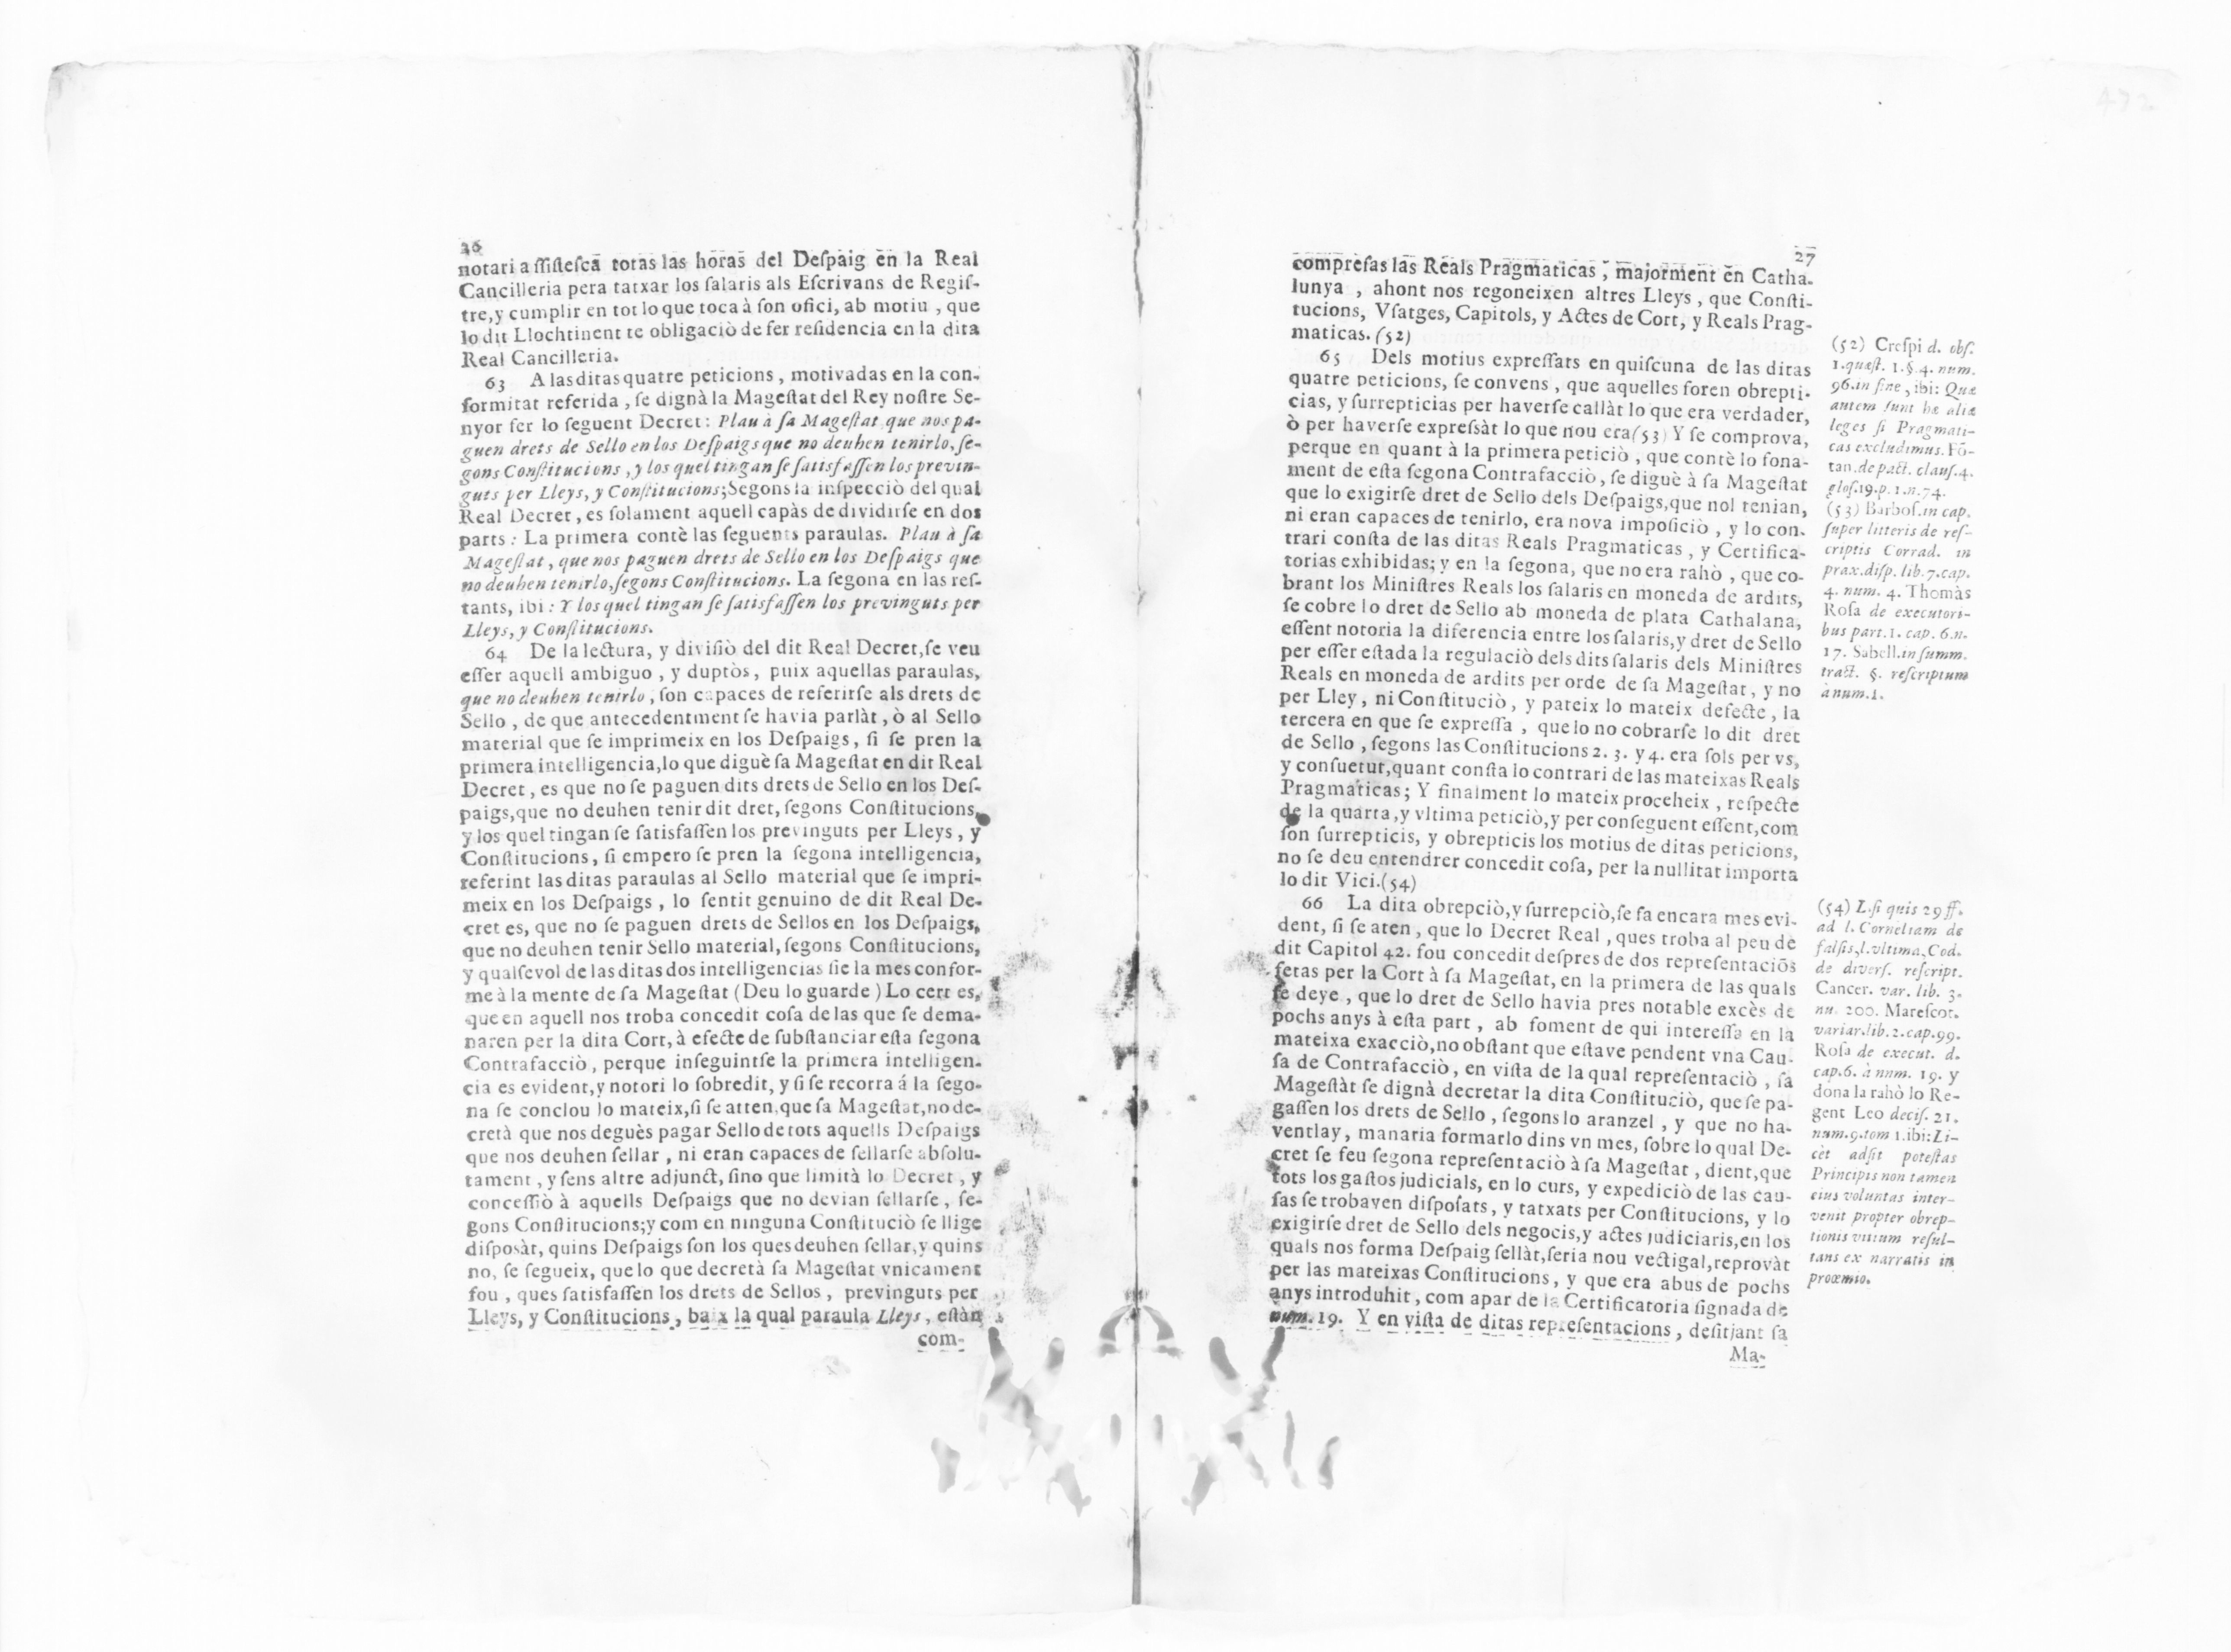 26
notari assistesca totas las horas del Despaig en la Real
Cancilleria pera tatxar los salaris als Escrivans de Regis-
tre, y cumplir en tot lo que toca à son ofici, ab motiu, que
lo dit Llochtinent te obligaciò de fer residencia en la dita
Real Cancilleria.
63 A las ditas quatre peticions, motivadas en la con-
formitat referida, se dignà la Magestat del Rey nostre Se-
nyor fer lo seguent Decret: Plau à sa Magestat que nos pa-
guen drets de Sello en los Despaigs que no deuhen tenirlo, se-
gons Constitucions, y los quel tingan se satisfassen los previn-
guts per Lleys, y Constitucions; Segons la inspecciò del qual
Real Decret, es solament aquell capàs de dividirse en dos
parts: La primera contè las seguents paraulas. Plau à sa
Magestat, que nos paguen drets de Sello en los Despaigs que
no deuhen tenirlo, segons Constitucions. La segona en las res-
tants, ibi: Y los quel tingan se satisfassen los previnguts per
Lleys, y Constitucions.
64 De la lectura, y divisiò del dit Real Decret, se veu
esser aquell ambiguo, y duptòs, puix aquellas paraulas,
que no deuhen tenirlo, son capaces de referirse als drets de
Sello, de que antecedentment se havia parlàt, ò al Sello
material que se imprimeix en los Despaigs, si se pren la
primera intelligencia, lo que diguè sa Magestat en dit Real
Decret, es que no se paguen dits drets de Sello en los Des-
paigs, que no deuhen tenir dit dret, segons Constitucions,
y los quel tingan se satisfassen los previnguts per Lleys, y
Constitucions, si empero se pren la segona intelligencia,
referint las ditas paraulas al Sello material que se impri-
meix en los Despaigs, lo sentit genuino de dit Real De-
cret es, que no se paguen drets de Sellos en los Despaigs,
que no deuhen tenir Sello material, segons Constitucions,
y qualsevol de las ditas dos intelligencias sie la mes confor-
me à la mente de sa Magestat (Deu lo guarde) Lo cert es,
que en aquell nos troba concedit cosa de las que se dema-
naren per la dita Cort, à efecte de substanciar esta segona
Contrafacciò, perque inseguintse la primera intelligen-
cia es evident, y notori lo sobredit, y si se recorra á la sego-
na se conclou lo mateix, si se atten, que sa Magestat, no de-
cretà que nos deguès pagar Sello de tots aquells Despaigs
que nos deuhen sellar, ni eran capaces de sellarse absolu-
tament, y sens altre adjunct, sino que limità lo Decret, y
concessiò à aquells Despaigs que no devian sellarse, se-
gons Constitucions; y com en ninguna Constituciò se llige
disposàt, quins Despaigs son los ques deuhen sellar, y quins
no, se segueix, que lo que decretà sa Magestat vnicament
fou, ques satisfassen los drets de Sellos, previnguts per
Lleys, y Constitucions, baix la qual paraula Lleys, estàn
com-
27
compresas las Reals Pragmaticas, majorment en Catha-
lunya, ahont nos regoneixen altres Lleys, que Consti-
tucions, Vsatges, Capitols, y Actes de Cort, y Reals Prag-
maticas. (52)
65 Dels motius expressats en quiscuna de las ditas
quatre peticions, se convens, que aquelles foren obrepti-
cias, y surrepticias per haverse callàt lo que era verdader,
ò per haverse expressàt lo que nou era (53) Y se comprova,
perque en quant à la primera peticiò, que contè lo fona-
ment de esta segona Contrafacciò, se diguè à sa Magestat
que lo exigirse dret de Sello dels Despaigs, que nol tenian,
ni eran capaces de tenirlo, era nova imposiciò, y lo con-
trari consta de las ditas Reals Pragmaticas, y Certifica-
torias exhibidas; y en la segona, que no era rahò, que co-
brant los Ministres Reals los salaris en moneda de ardits,
se cobre lo dret de Sello ab moneda de plata Cathalana,
essent notoria la diferencia entre los salaris, y dret de Sello
per esser estada la regulaciò dels dits salaris dels Ministres
Reals en moneda de ardits per orde de sa Magestat, y no
per Lley, ni Constituciò, y pateix lo mateix defecte, la
tercera en que se expressa, que lo no cobrarse lo dit dret
de Sello, segons las Constitucions 2. 3. y 4. era sols per vs,
y consuetut, quant consta lo contrari de las mateixas Reals
Pragmáticas; Y finalment lo mateix proceheix, respecte
de la quarta, y vltima peticiò, y per conseguent essent, com
son surrepticis, y obrepticis los motius de ditas peticions,
no se deu entendrer concedit cosa, per la nullitat importa
lo dit Vici. (54)
66 La dita obrepciò, y surrepciò, se fa encara mes evi-
dent, si se aten, que lo Decret Real, ques troba al peu de
dit Capitol 42. fou concedit despres de dos representaciõs
fetas per la Cort à sa Magestat, en la primera de las quals
se deye, que lo dret de Sello havia pres notable excès de
pochs anys à esta part, ab foment de qui interessa en la
mateixa exacciò, no obstant que estave pendent vna Cau-
sa de Contrafacciò, en vista de la qual representaciò, sa
Magestàt se dignà decretar la dita Constituciò, que se pa-
gassen los drets de Sello, segons lo aranzel, y que no ha-
ventlay, manaria formarlo dins vn mes, sobre lo qual De-
cret se feu segona representaciò à sa Magestat, dient, que
tots los gastos judicials, en lo curs, y expediciò de las cau-
sas se trobaven disposats, y tatxats per Constitucions, y lo
exigirse dret de Sello dels negocis, y actes judiciaris, en los
quals nos forma Despaig sellàt, seria nou vectigal, reprovàt
per las mateixas Constitucions, y que era abus de pochs
anys introduhit, com apar de la Certificatoria signada de
num. 19. Y en vista de ditas representacions, desitjant sa
Ma-
(52) Crespi d. obs.
1. quæst. 1. §. 4. num.
96. in fine, ibi: Quæ
autem sunt hæ aliæ
leges si Pragmati-
cas excludimus. Fõ-
tan. de pact. claus. 4.
glos. 19. p. 1. n. 74.
(53) Barbos. in cap.
super litteris de res-
criptis Corrad. in
prax. disp. lib. 7. cap.
4. num. 4. Thomàs
Rosa de executori-
bus part. 1. cap. 6. n.
17. Sabell. in summ.
tract. §. rescriptum
à num. 1.
(54) L. si quis 29 ff.
ad l. Corneliam de
falsis, l. vltima, Cod.
de divers. rescript.
Cancer. var. lib. 3.
nu. 200. Marescot.
variar. lib. 2. cap. 99.
Rosa de execut. d.
cap. 6. à num. 19. y
dona la rahò lo Re-
gent Leo decis. 21.
num. 9. tom 1. ibi: Li-
cèt adsit potestas
Principis non tamen
eius voluntas inter-
venit propter obrep-
tionis vitium resul-
tans ex narratis in
proœmio.